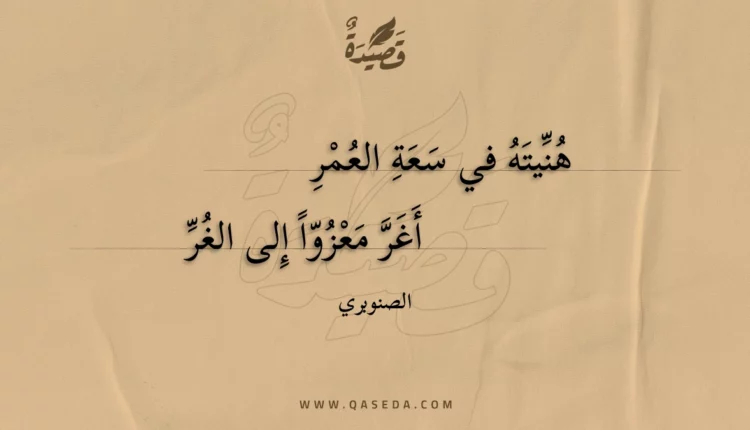 قَصِيدَةٌ
هُنِّيتَهُ في سَعَةِ العُمْرِ
أَغَرَّ مَعْزُوّاً إِلى الغُرِّ
الصنوبري
WWW.QASEDA.COM